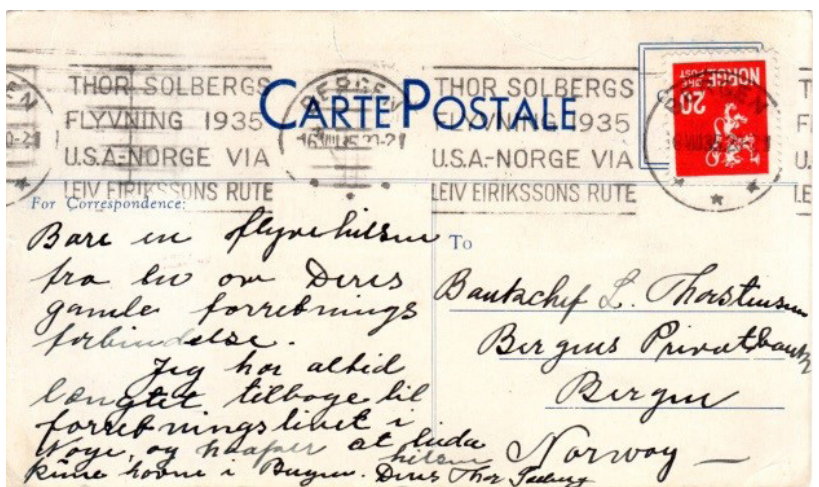 THOR SOLBERGS
FLYVNING 1935
U.S.A.-NORGE VIA
LEIV EIRIKSSONS RUTE
BERGEN
CARTE POSTALE
THOR SOLBERGS
FLYVNING 1935
U.S.A.-NORGE VIA
LEIV EIRIKSSONS RUTE
NORGE
POST
20
For Correspondence:
Bare en flyvehilsen
fra en om Deres
gamle forretnings
forbindelse.
Jeg har altid
længtet tilbage til
forretningslivet i
Noge, og haaper at
hilsen
Deres Thor Solberg
To
Bankchef L. Thorstensen
Bergens Privatbank
Bergen
Norway